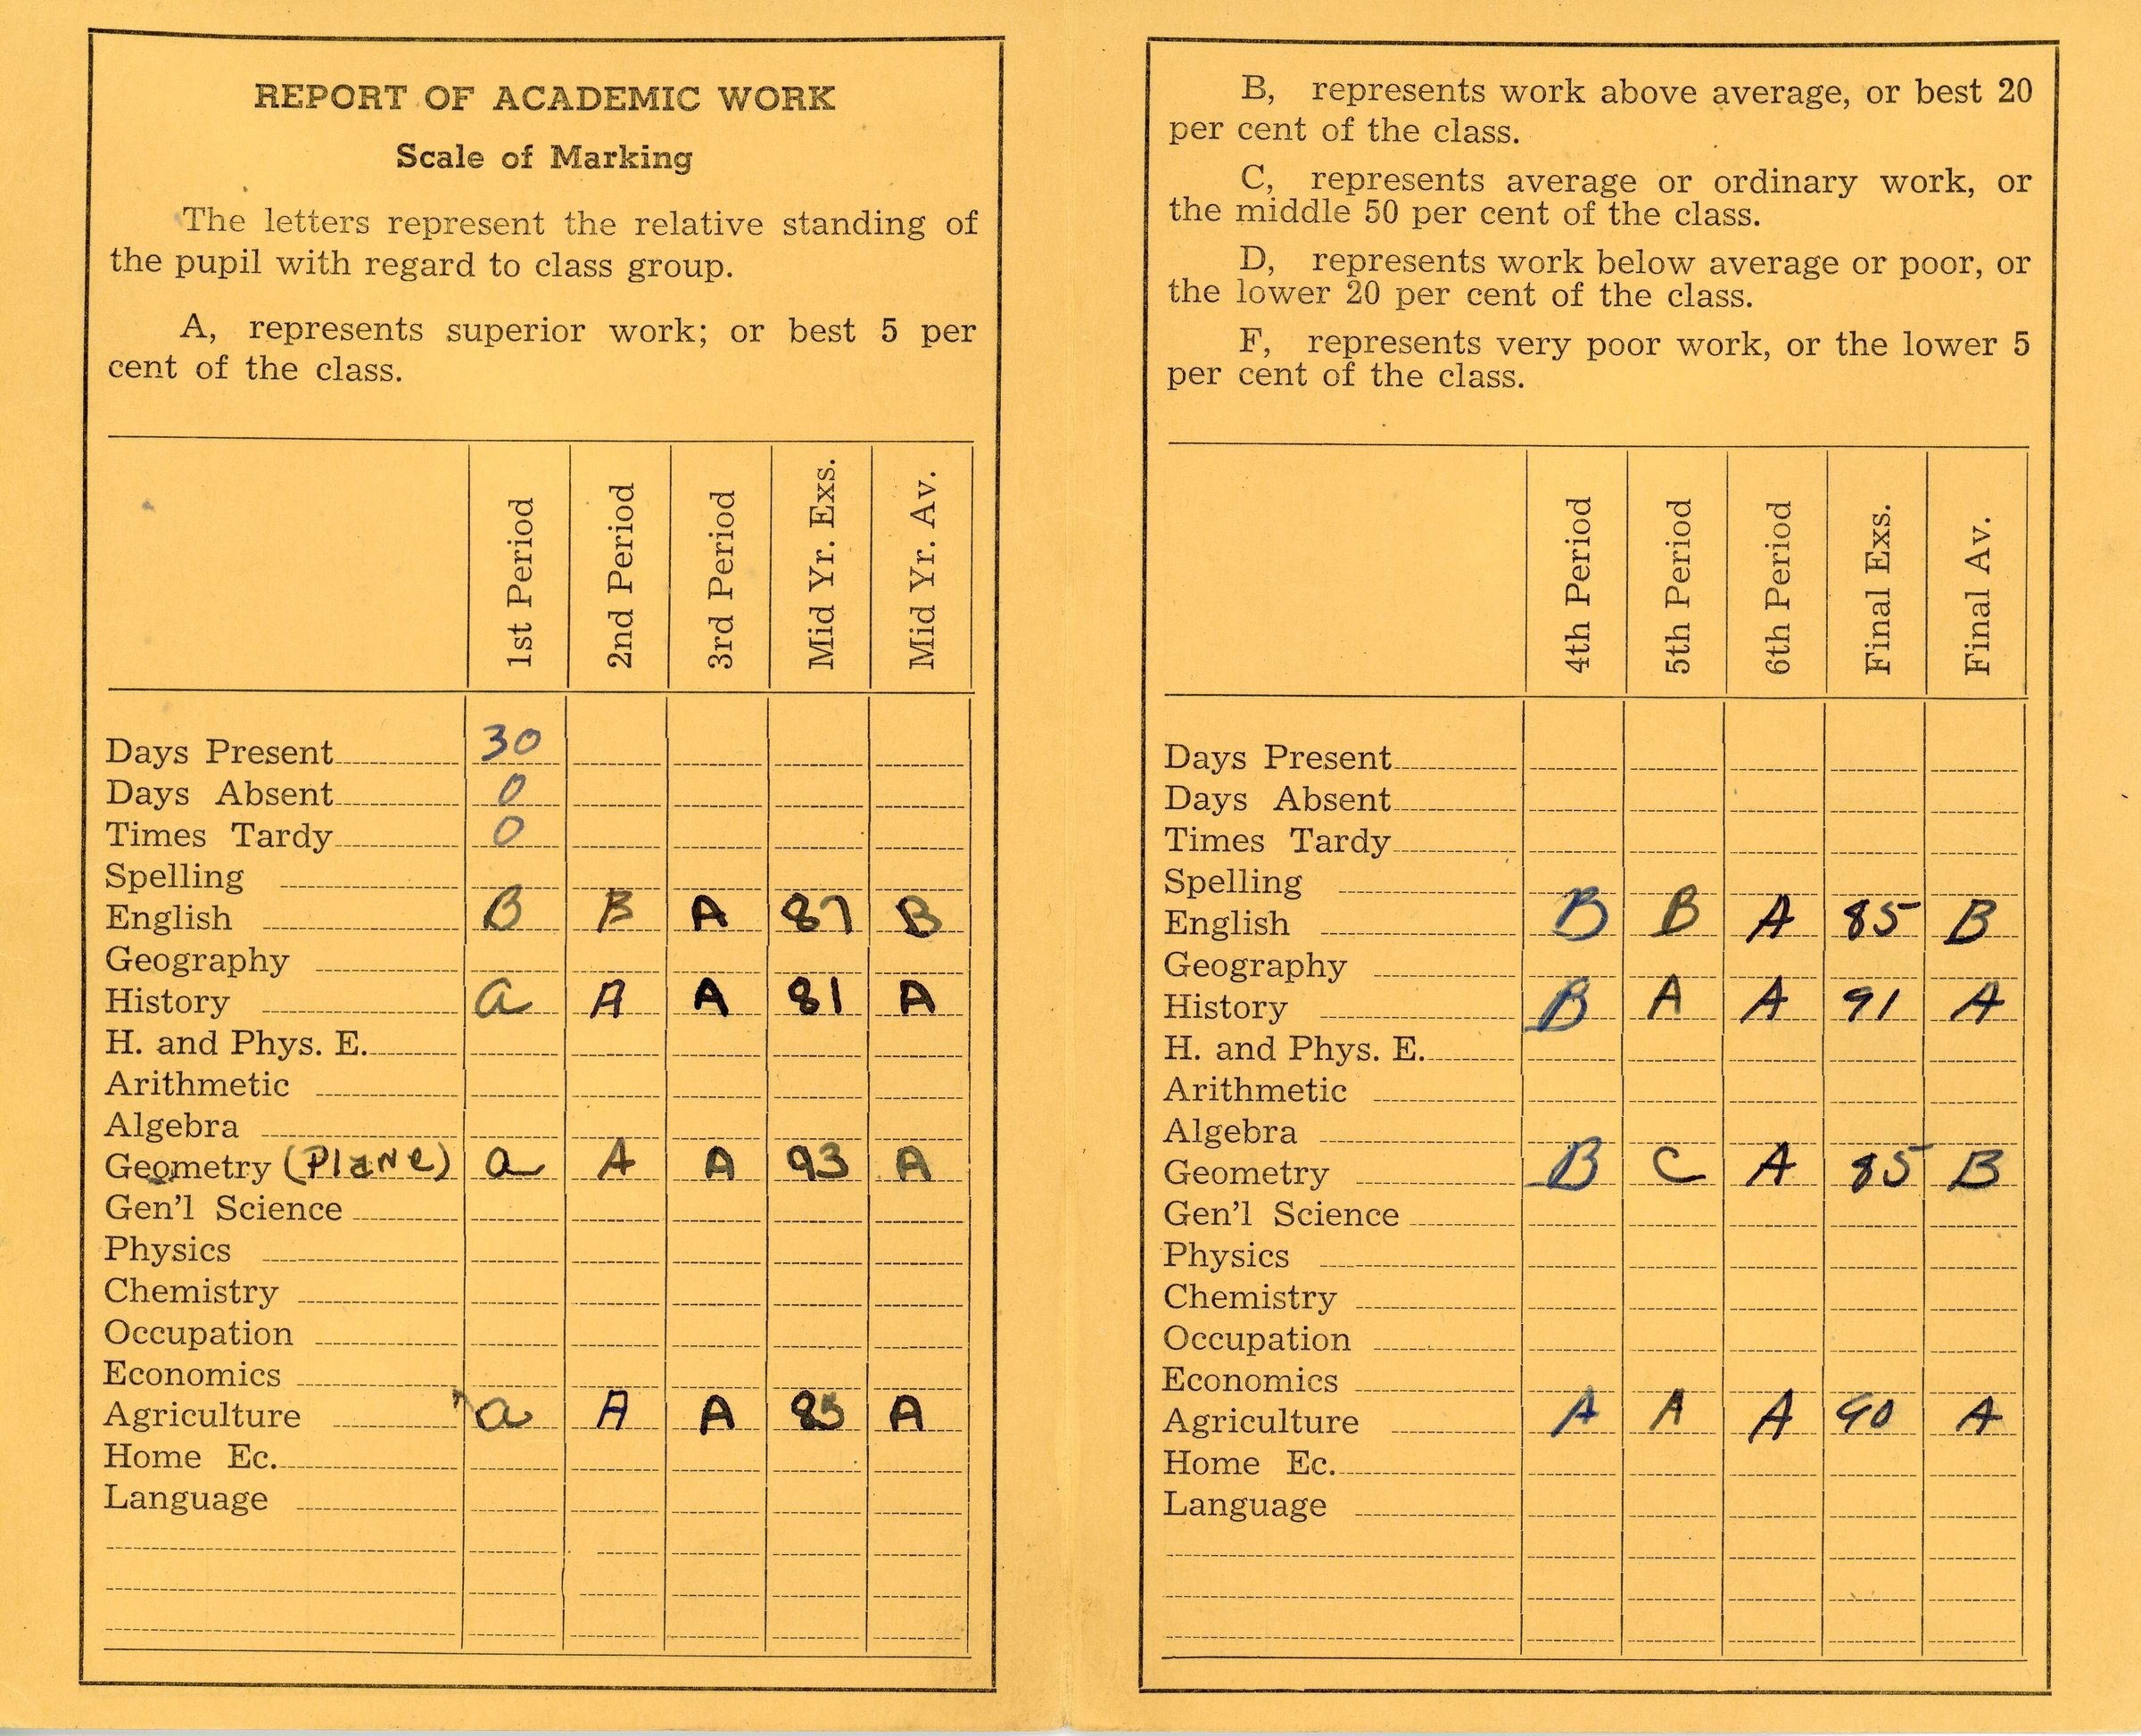 REPORT OF ACADEMIC WORK
Scale of Marking
The letters represent the relative standing of
the pupil with regard to class group.
A, represents superior work; or best 5 per
cent of the class.
1st Period 2nd Period 3rd Period Mid Yr. Exs. Mid Yr. Av.
Days Present 30
Days Absent 0
Times Tardy 0
Spelling
English B B A 87 B
Geography
History a A A 81 A
H. and Phys. E.
Arithmetic
Algebra
Geometry (Plane) a A A 93 A
Gen'l Science
Physics
Chemistry
Occupation
Economics
Agriculture a A A 85 A
Home Ec.
Language
B, represents work above average, or best 20
per cent of the class.
C, represents average or ordinary work, or
the middle 50 per cent of the class.
D, represents work below average or poor, or
the lower 20 per cent of the class.
F, represents very poor work, or the lower 5
per cent of the class.
4th Period 5th Period 6th Period Final Exs. Final Av.
Days Present
Days Absent
Times Tardy
Spelling
English B B A 85 B
Geography
History B A A 91 A
H. and Phys. E.
Arithmetic
Algebra
Geometry B C A 85 B
Gen'l Science
Physics
Chemistry
Occupation
Economics
Agriculture A A A 90 A
Home Ec.
Language